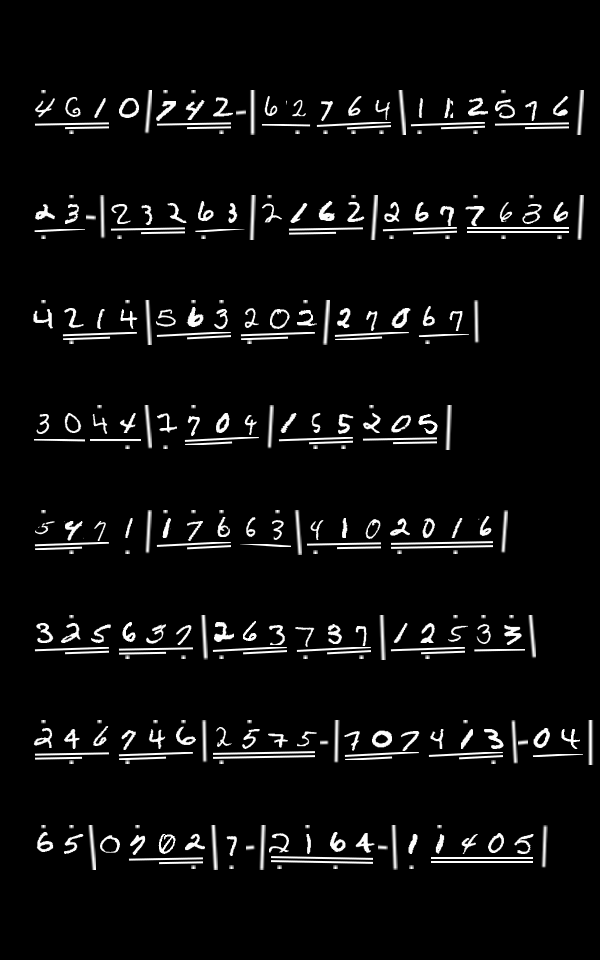 4610|742-|62764|112576
23-|23263|2162|2677636
4214|563202|27067
3044|7704|155205
5471|17663|4102016
325637|263737|12533
246746|2575-|707413|-04|
65|0702|7-|2164-|11405|